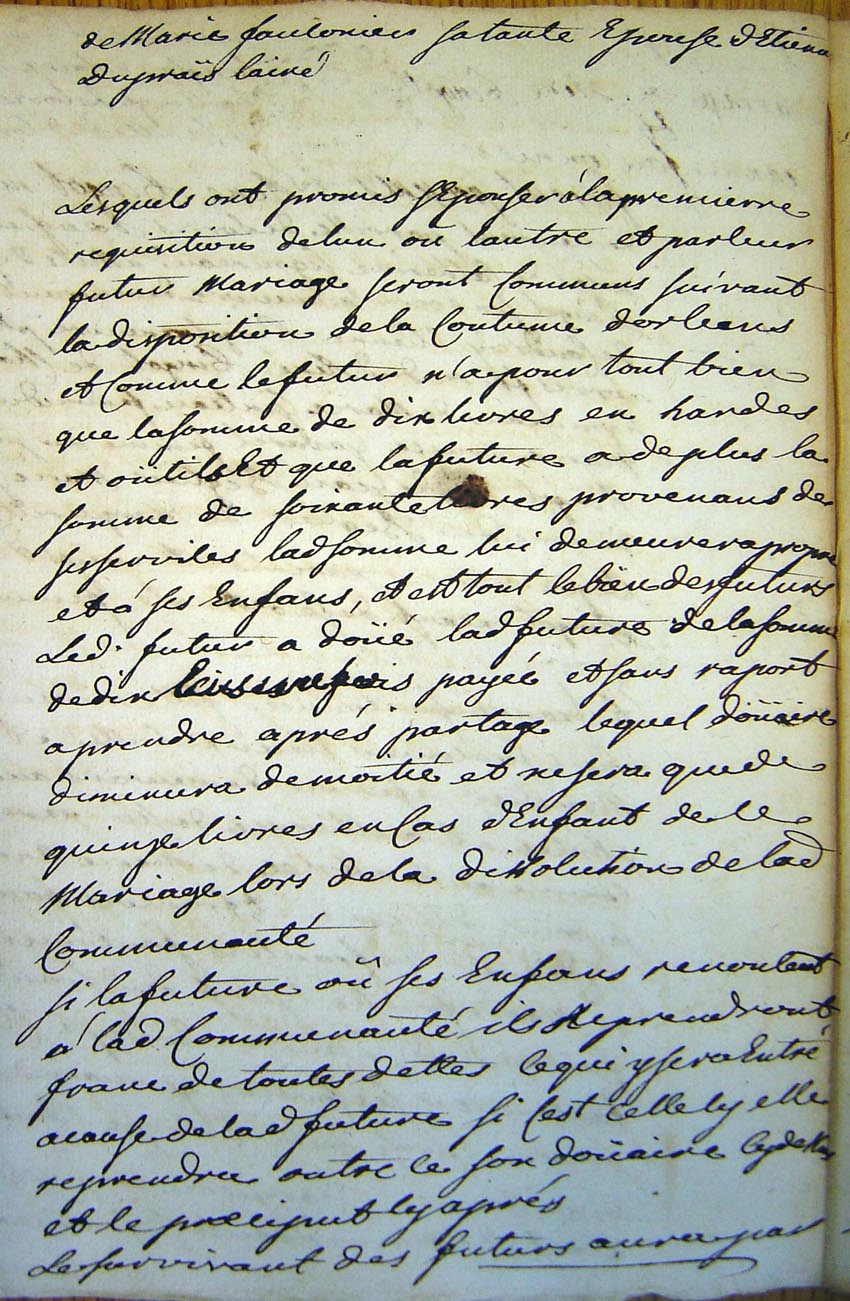 de Marie faulonier sa tante Epouse d'Etienne
Dupraïs lainé
Lesquels ont promis sEpouser á la premierre
requisition de lun ou lautre et par leur
futur Mariage seront Communs suivant
la disposition de la Coutume dorleans
et Comme le futur n'a pour tout bien
que la somme de dix livres en hardes
et oütils Et que la future a de plus la
somme de soixante livres provenans de
ses services lad somme lui demeurera propre
et á ses Enfans, et est tout le bien des futurs
Led. futur a doüé lad future de la somme
de dix payée et sans raport
a prendre aprés partage lequel doüaire
diminura de moitié et ne sera que de
quinze livres en Cas dEnfant de le
Mariage lors de la dissolution de lad
Communauté
si la future oü ses Enfans renontent
á lad Communauté ils Reprendront
franc de toutes dettes ce qui y sera Entré
acause de lad future si Cest Celle Cy elle
reprendra outre ce son doüaire Cy dessus
et le preciput Cy aprés
Le survivant des futurs aura par